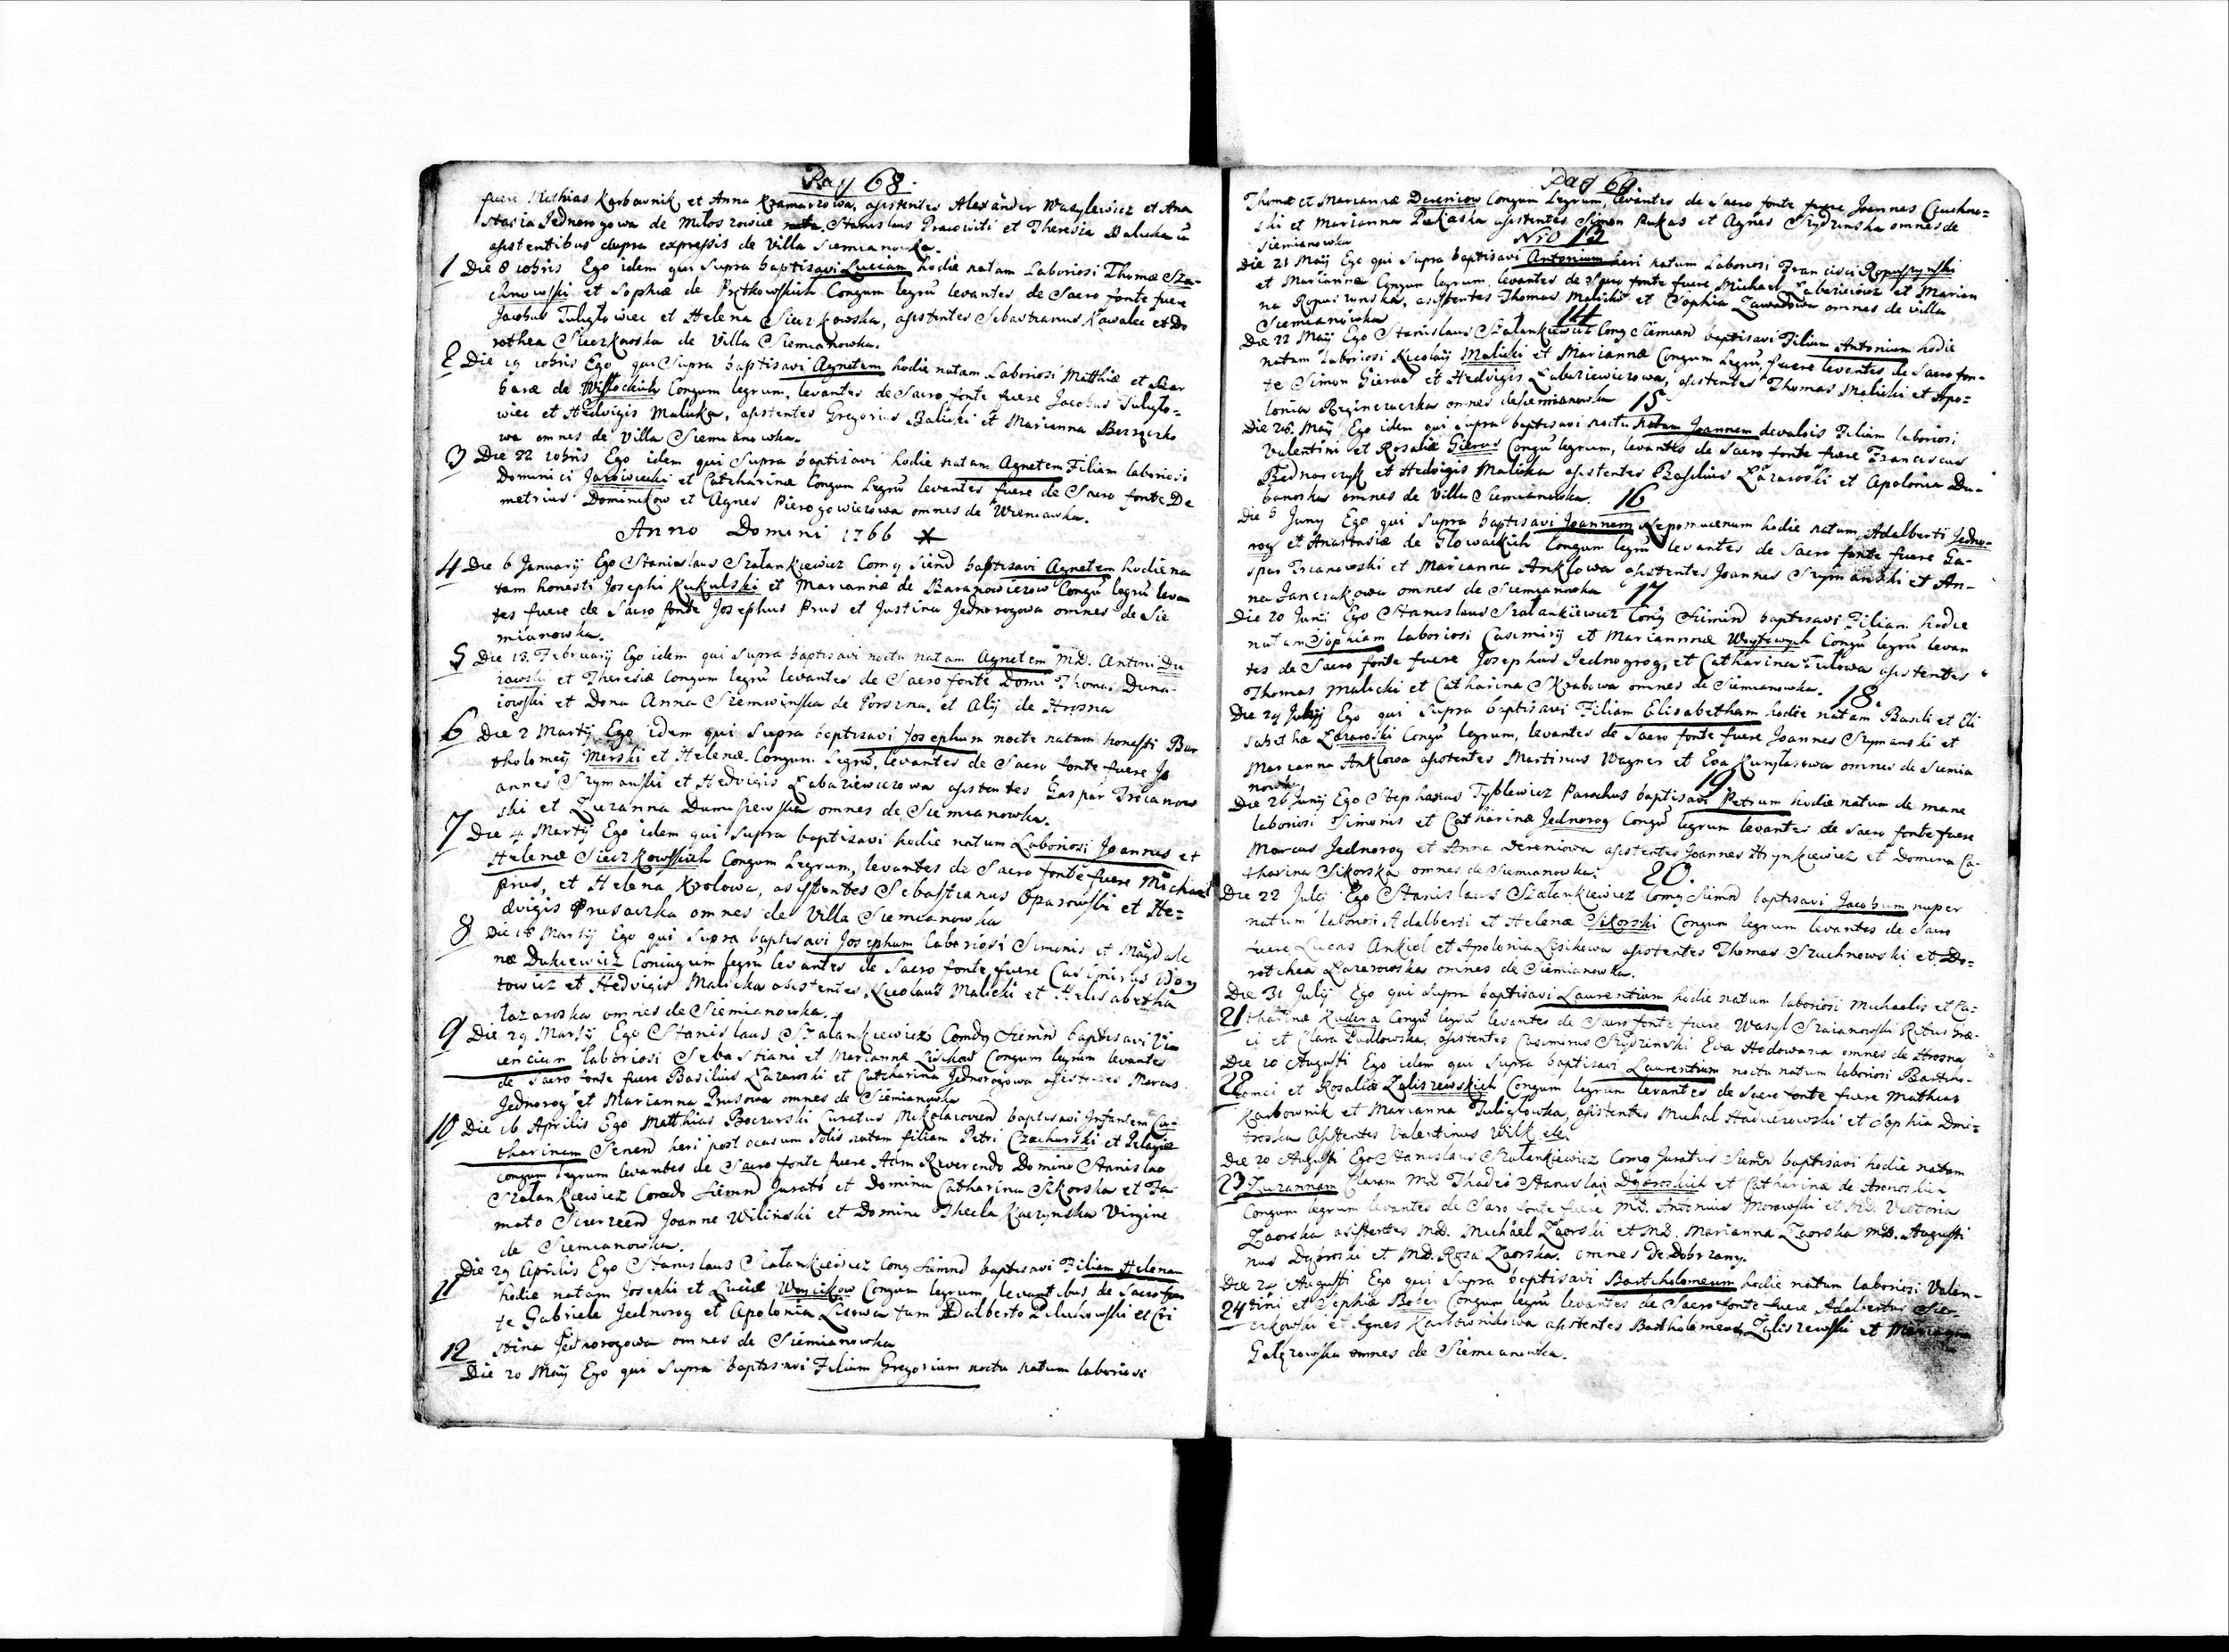 Pag 68.
fuere Mathias Karbownik et Anna Kramarzowa, asistentes Alexander Wasylewicz et Ana
stasia Jednorogowa de Miloszowice Stanislaus Pracowiti et Theresia Malicka
asistentibus supra expressis de Villa Siemianowka.
1 Die 8 10bris Ego idem qui Supra baptisavi Luciam hodie natam Laboriosi Thomæ Sza-
chnowski et Sophiæ de Pętkowskich Congum legrũ levantes de Sacro fonte fuere
Jacobus Tuliglowiec et Helena Sieczkowska, asistentes Sebastianus Kawalec et Do
rothea Sieczkowska de Villa Siemianowka.
2 Die 19 10bris Ego qui Supra baptisavi Agnetem hodie natam Laboriosi Matthiæ et Bar
baræ de Wisłockich Congum legrum, levantes de Sacro fonte fuere Jacobus Tuliglo=
wiec et Hedvigis Malicka, asistentes Gregorius Balicki et Marianna
wa omnes de Villa Siemianowka.
3 Die 22 10bris Ego idem qui Supra baptisavi hodie natam Agnetem Filiam laboriosi
Dominici et Catharinæ Congum Legrũ levantes fuere de Sacro fonte De
metrius Dominikow et Agnes Pierogowiczowa omnes de Wieniawka.
Anno Domini 1766
4 Die 6 Januarij Ego Stanislaus Szalankiewicz Comg Siemd baptisavi Agnetem hodie na
tam honesti Josephi Kukulski et Mariannæ de Baranowiczow Congũ legrũ levan
tes fuere de Sacro fonte Josephus Prus et Justina Jednorogowa omnes de Sie
mianowka.
5 Die 13 Februarij Ego idem qui Supra baptisavi noctu natam Agnetem MD. Antoni Du
iowski et Theresiæ Congum legrũ levantes de Sacro fonte Domi Thomas Duna-
iowski et Dona Anna Siemwinska de Porszna. et Alij de Hrosna
6 Die 2 Martij Ego idem qui supra baptisavi Josephum nocte natum honesti Bar
tholomeij Merski et Helenæ Congum. Legrũ, levantes de Sacro fonte fuere Jo
annes Szymanski et Hedvigis Łabaziewiczowa asistentes Gaspar Trcianow
ski et Zuzanna omnes de Siemianowka.
7 Die 4 Martij Ego idem qui Supra baptisavi hodie natum Laboriosi Joannes et
Helenæ Sieczkowskich Congum Legrum, levantes de Sacro fonte fuere Michael
Prus, et Helena Krolowa, asistentes Sebastianus Oparowski et He=
dvigis Prusaczka omnes de Villa Siemianowka
8 Die 18 Martij Ego qui Supra baptisavi Josephum laboriosi Simonis et Magdale
næ Dukiewicz Coniugum legrũ levantes de Sacro fonte fuere Casimirus
towicz et Hedvigis Malicka asistentes, Nicolaus Malicki et Helisabetha
lazarowska omnes de Siemianowka.
9 Die 29 Martij Ego Stanislaus Szalankiewicz Comdg Siemd baptisavi Vin
cencium laboriosi Sebastiani et Mariannæ Congum legrum levantes
de Sacro fonte fuere Basilius Lazarowski et Catharina Jednorogowa asistentes Marcus
Jednorog et Marianna Prusowa omnes de Siemianowka
10 Die 16 Aprilis Ego Matthias Boczarski Curatus baptisavi Infantem Ca-
tharinam Senend heri post ocasum Solis natam filiam Petri et Pelagiæ
Congum legrum levantes de Sacro fonte fuere Adm Reverendo Domino Stanislao
Szalankiewicz Comdo Siemd Jurato et Domina Catharina Sikorska et Fa
mato Joanne Wilinski et Domina Thecla Kaczynska Virgine
de Siemianowka.
11 Die 29 Aprilis Ego Stanislaus Szalankiewicz Comg Siemd baptisavi Filiam Helenam
hodie natam Josephi et Luciæ Woycikow Congum legrum, levantibus de Sacro fon
te Gabriele Jednorog et Apolonia Lisowa tum Adalberto et Cri
stina Jednorogowa omnes de Siemianowka
12 Die 20 Maij Ego qui Supra baptisavi Filium Gregorium noctu natum laboriosi
Pag 69.
Thomæ et Mariannæ Dereniow Congum Legrum, levantes de Sacro fonte fuere Joannes Czuchno=
ski et Marianna Pukaska asistentes Simon Pukas et Agnes Szydzinska omnes de
Siemianowka
Nro 13
Die 21 Maij Ego qui Supra baptisavi Antonium heri natum Laboriosi Francisci Ropuszynski
et Mariannæ Congum legrum. levantes de Sacro fonte fuere Michael Łabaziewicz et Marian
na Ropuszynska, asistentes Thomas Malicki et Sophia Zawadowa omnes de villa
Siemianowka
14
Die 22 Maij Ego Stanislaus Szalankiewicz Comg Siemian baptisavi Filium Antonium hodie
natum laboriosi Nicolaij Malicki et Mariannæ Congum Legrũ, fuere levantes de Sacro fon-
te Simon Gierus et Hedvigis Labaziewiczowa, asistentes Thomas Malicki et Apo=
lonia omnes de Siemianowka
15
Die 26. Maij Ego idem qui supra baptisavi noctu natum Joannem Filium laboriosi
Valentini et Rosaliæ Gierus Congũ legrum, levantes de Sacro fonte fuere Franciscus
Bednarczyk et Hedvigis Malicka asistentes Basilius Łazarowski et Apolonia Du-
banoska omnes de Villa Siemianowka.
16
Die 5 Juny Ego qui Supra baptisavi Joannem Nepomucenum hodie natum Adalberti Jedno-
rog et Anastasiæ de Glowackich Congum legrũ levantes de Sacro fonte fuere Ga-
spar Trcianowski et Marianna Anklowa asistentes Joannes Szymanski et An-
na Janczakowa omnes de Siemianowka
17
Die 20 Junij Ego Stanislaus Szalankiewicz Comg Siemd baptisavi Filiam hodie
natam Sophiam laboriosi Casimirij et Mariannæ Woytowych Congũ legrũ levan
tes de Sacro fonte fuere Josephus Jednogrog, et Catharina asistentes
Thomas Malicki et Catharina Skrabowa omnes de Siemianowka.
18.
Die 24 Ego qui Supra baptisavi Filiam Elisabetham hodie natam Basili et Eli
sabethæ Lazarowski Congũ legrum, levantes de Sacro fonte fuere Joannes Szymanski et
Marianna Anklowa asistentes Martinus Wagner et Eva omnes de Siemia
nowka
19
Die 26 Junij Ego Stephanus Tyblewicz Parochus baptisavi Petrum hodie natum de mane
laboriosi Simonis et Catharinæ Jednorog Congũ legrum levantes de Sacro fonte fuere
Marcus Jednorog et Anna Dereniowa asistentes Joannes Hrynkiewicz et Domina Ca-
tharina Sikorska omnes de Siemianowka.
20.
Die 22 Julij Ego Stanislaus Szalankiewicz Comg Siemd baptisavi Jacobum nuper
natum laboriosi Adalberti et Helenæ Sikorski Congum legrum levantes de Sacro
fuere Lucas Ankiel et Apolonia Lisikowa asistentes Thomas Szuchnowski et Do=
rothea Lazarowska omnes de Siemianowka.
Die 31 Julij Ego qui supra baptisavi Laurentium hodie natum laboriosi Michaelis et Ca-
21 tharinæ Kudera Congũ legrũ levantes de Sacro fonte fuere Wasyl Szaianowski Ritus Græ-
ci et Clara Pudlowska, asistentes Casimirus Szydzinski Eva Hodowana omnes de Hrosna
Die 10 Augusti Ego idem qui supra baptisavi Laurentium noctu natum laboriosi Bartho-
22 lomei et Rosaliæ Zaliszewskich Congum legrum levantes de Sacro fonte fuere Mathias
Karbownik et Marianna Tuliglowka, asistentes Michal et Sophia Dmi=
troska Asistentes Valentinus Wilk etc.
Die 20 Augusti Ego Stanislaus Szalankiewicz Comg Juratus Siemn baptisavi hodie natam
23 Zuzannam Claram MD Thadeo Stanislai et Catharinæ de
Congum legrum levantes de Sacro fonte fuere MD. Antonius Morawski et MD. Victoria
Zaorska asistentes MD. Michael Zaorski et MD. Marianna Zaorska MD. Augusti
nus et MD. Roza Zaorska. omnes de Dobrzany.
Die 24 Augusti Ego qui Supra baptisavi Bartholomeum hodie natum laboriosi Valen-
24 tini et Sophiæ Bober Congum legrũ levantes de Sacro fonte fuere Adalbertus Sie-
czkowski et Agnes Karbownikowa asistentes Bartholomeus Zaliszewski et Marianna
omnes de Siemianowka.